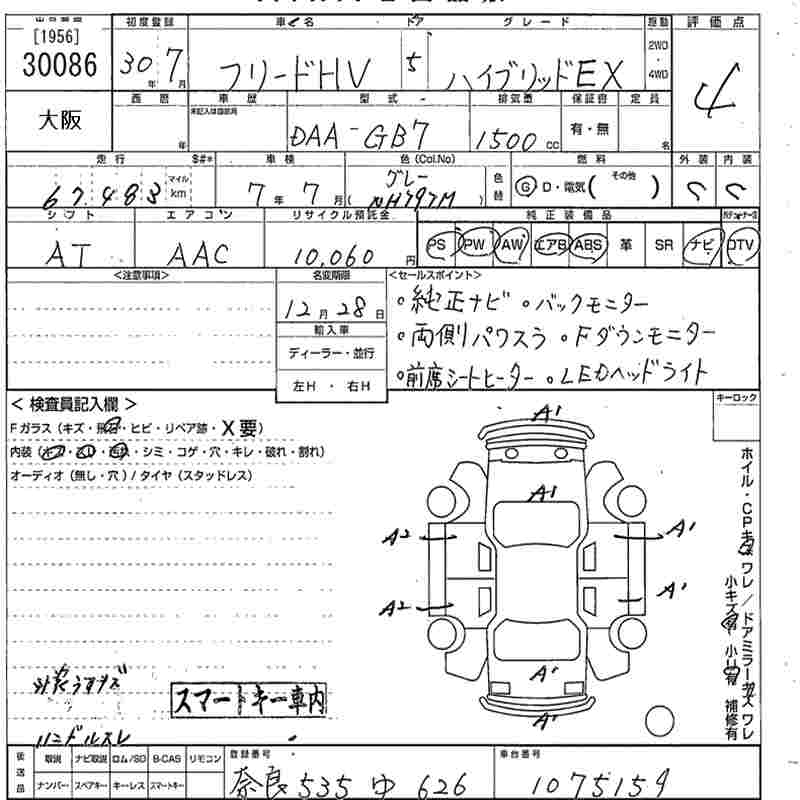 [1956]
30086
大阪
初度登録 車名 ドア グレード 原動 評価点
30年 7月 フリードHV 5 ハイブリッドEX 2WD・4WD 4
西暦 車歴 型式 排気量 保証書 定員
年 未記入は自家用 DAA-GB7 1500cc 有・無 名
走行 $#* 車検 色(Col.No) 燃料 外装 内装
67,483 マイル km 7年 7月 グレー NH797M 色替 G D・電気( その他 ) C C
シフト エアコン リサイクル預託金 純正装備品
AT AAC 10,060円 PS PW AW エアB ABS 革 SR ナビ DTV
<注意事項> 名変期限 <セールスポイント>
12月28日 ◦純正ナビ ◦バックモニター
輸入車 ◦両側パワスラ ◦Fダウンモニター
ディーラー・並行
左H・右H ◦前席シートヒーター ◦LEDヘッドライト
<検査員記入欄> キーロック
Fガラス(キズ・飛石・ヒビ・リペア跡・X要)
内装(キズ・汚れ・・シミ・コゲ・穴・キレ・破れ・割れ)
オーディオ(無し・穴)/タイヤ(スタッドレス)
A1
A1
A2 A1
A2 A1
A1
A1
ホイル・CPキズ ワレ/ドアミラーキズ ワレ
小キズ有 小凹有 補修有
外装うすキズ
スマートキー車内
ハンドルスレ
後送品 取説 ナビ取説 ロム/SD B-CAS リモコン 登録番号 車台番号
ナンバー スペアキー キーレス スマートキー 奈良 535 ゆ 626 1075154